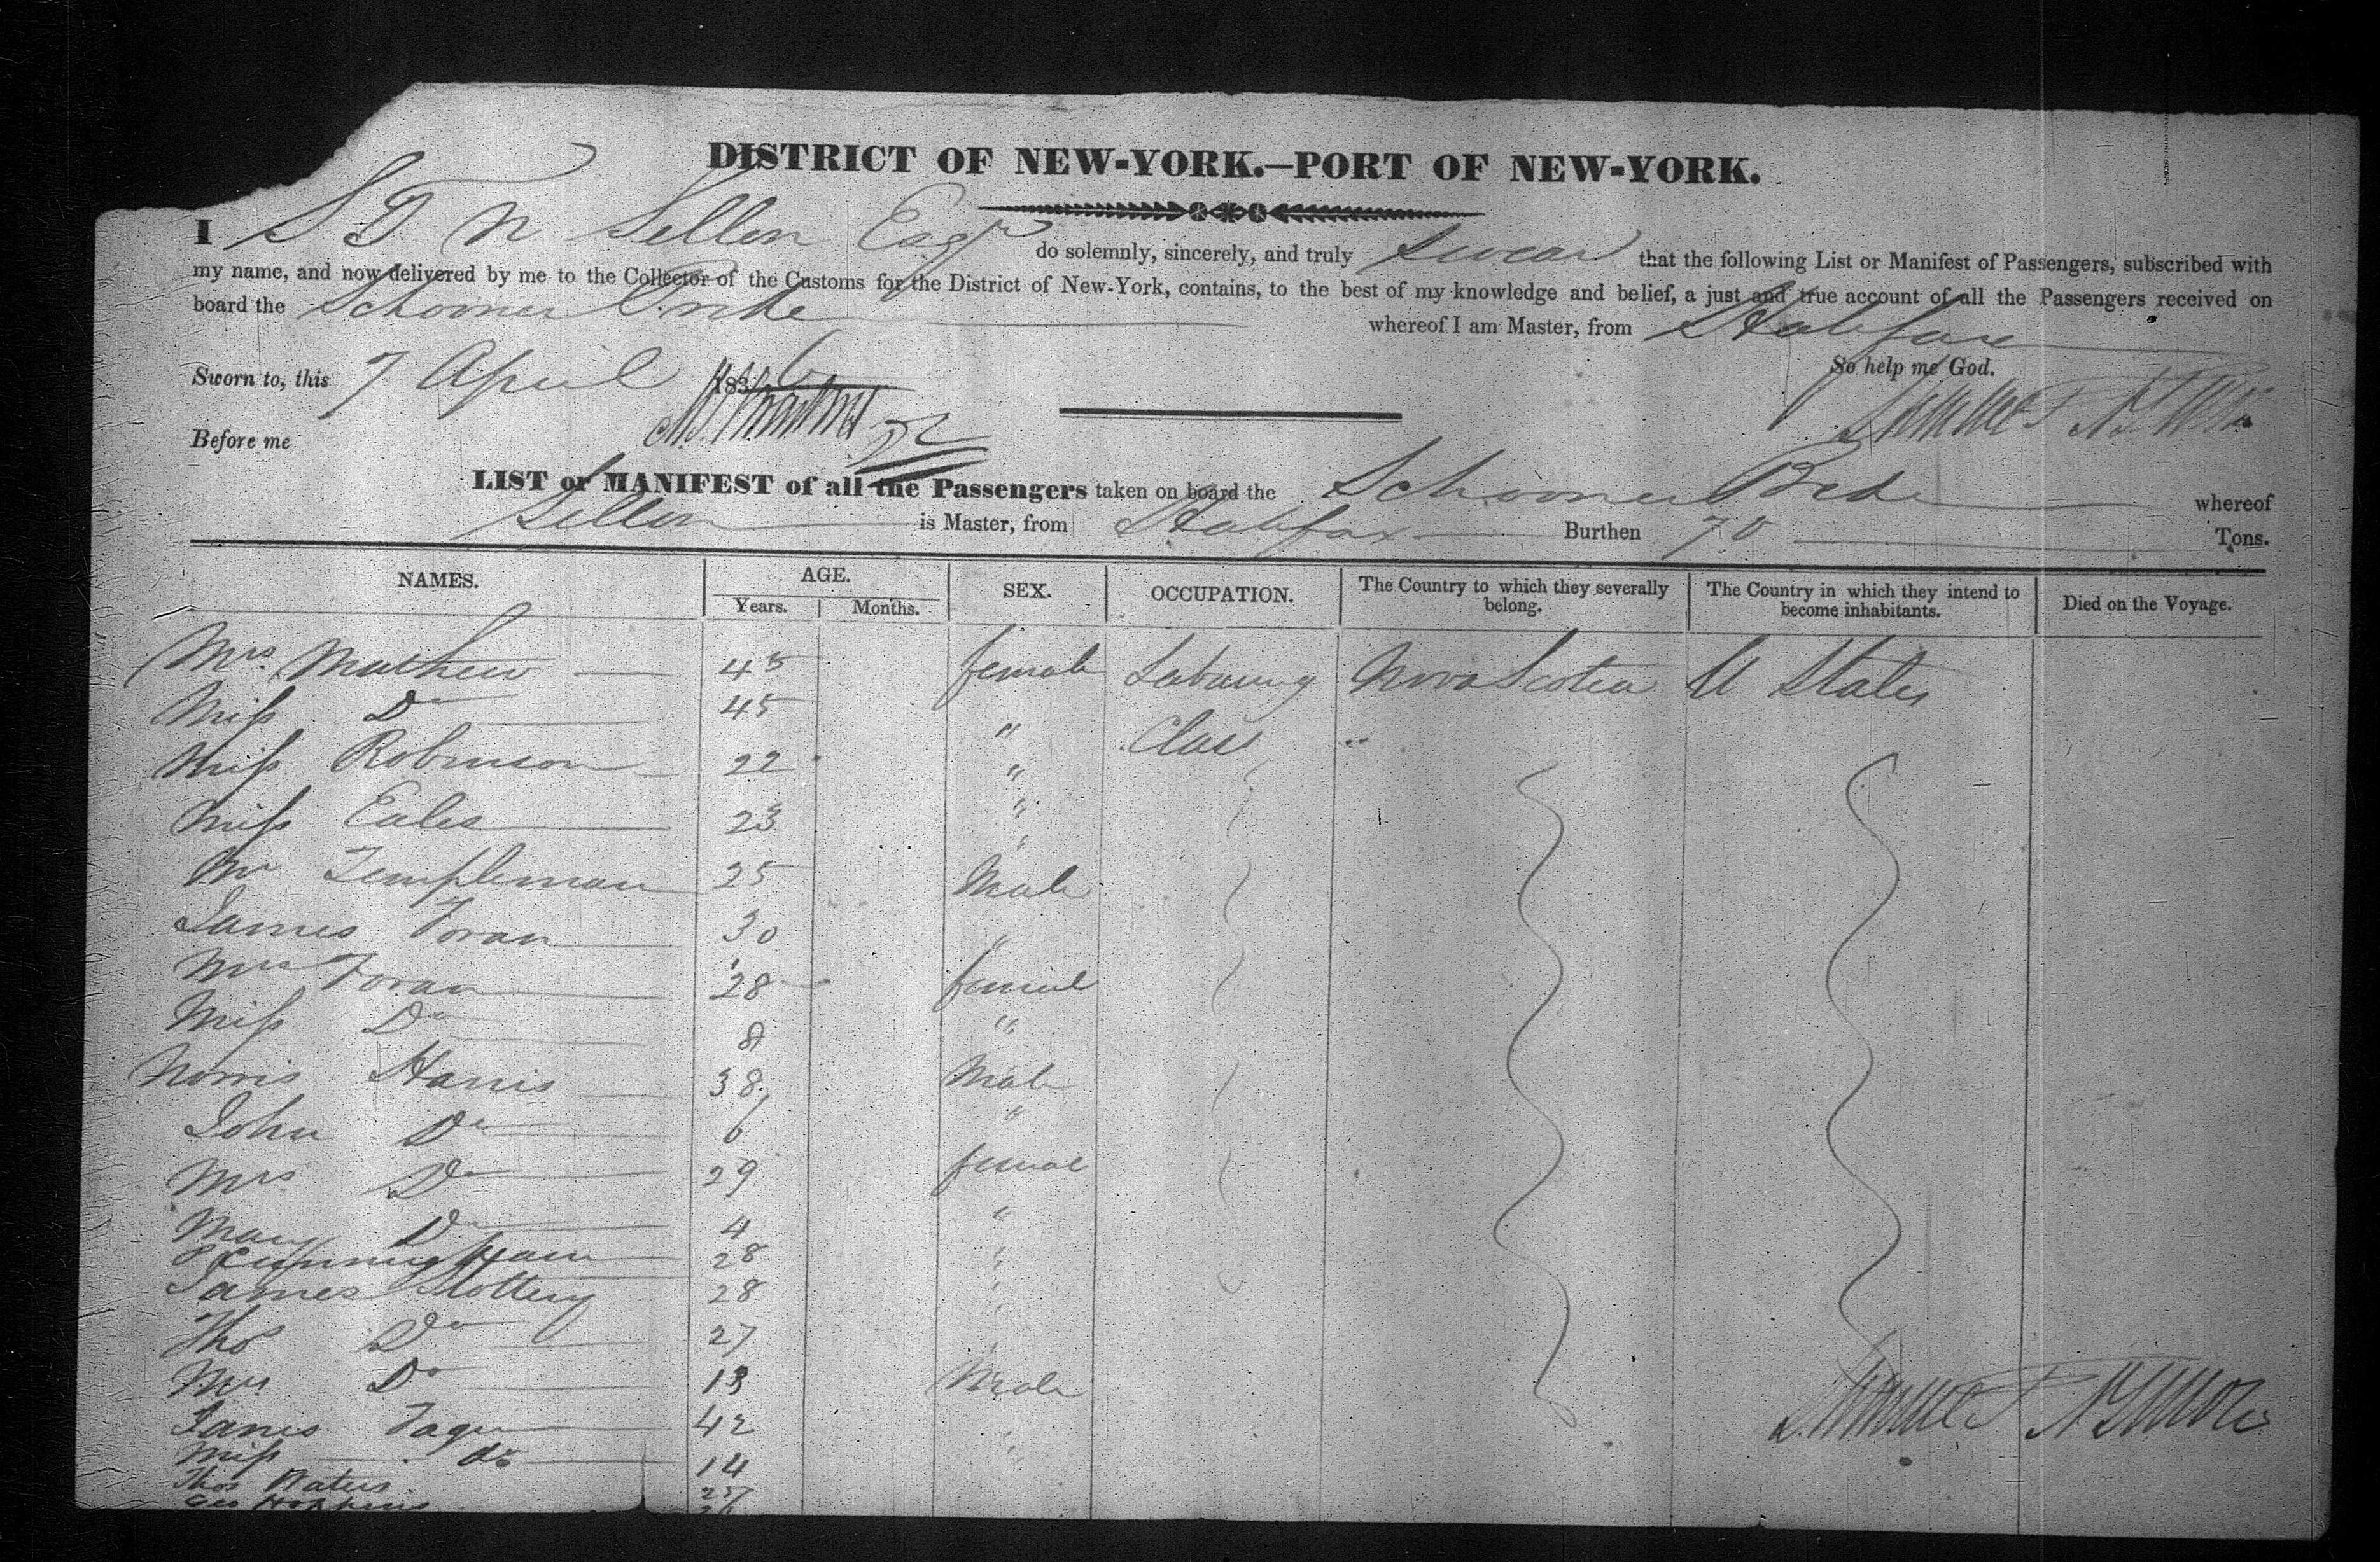 DISTRICT OF NEW-YORK.—PORT OF NEW-YORK.
I S D N Sellon Esqr do solemnly, sincerely, and truly Swear that the following List or Manifest of Passengers, subscribed with
my name, and now delivered by me to the Collector of the Customs for the District of New-York, contains, to the best of my knowledge and belief, a just and true account of all the Passengers received on
board the Schooner whereof I am Master, from Halifax
Sworn to, this 7 April 1836 So help me God.
Before me
LIST or MANIFEST of all the Passengers taken on board the Schooner whereof
Sellon is Master, from Halifax Burthen 70 Tons.
NAMES. AGE. SEX. OCCUPATION. The Country to which they severally belong. The Country in which they intend to become inhabitants. Died on the Voyage.
Years. Months.
Mrs. Mathew 45 female Labouring Nova Scotia U States
Miss Do 45 " Class "
Miss Robinson 22 "
Miss Eales 23 "
Mr Templeman 25 Male
James Foran 30 "
Mrs Foran 28 female
Miss Do 8 "
Norris Harris 38 Male
John Do 6 "
Mrs Do 29 female
Mary Do 4 "
Cunningham 28 "
James Slottery 28 "
Thos Do 27 "
Mrs Do 18 Male
James 42 "
Miss do 14 "
Thos Waters 25
Geo Hopkins